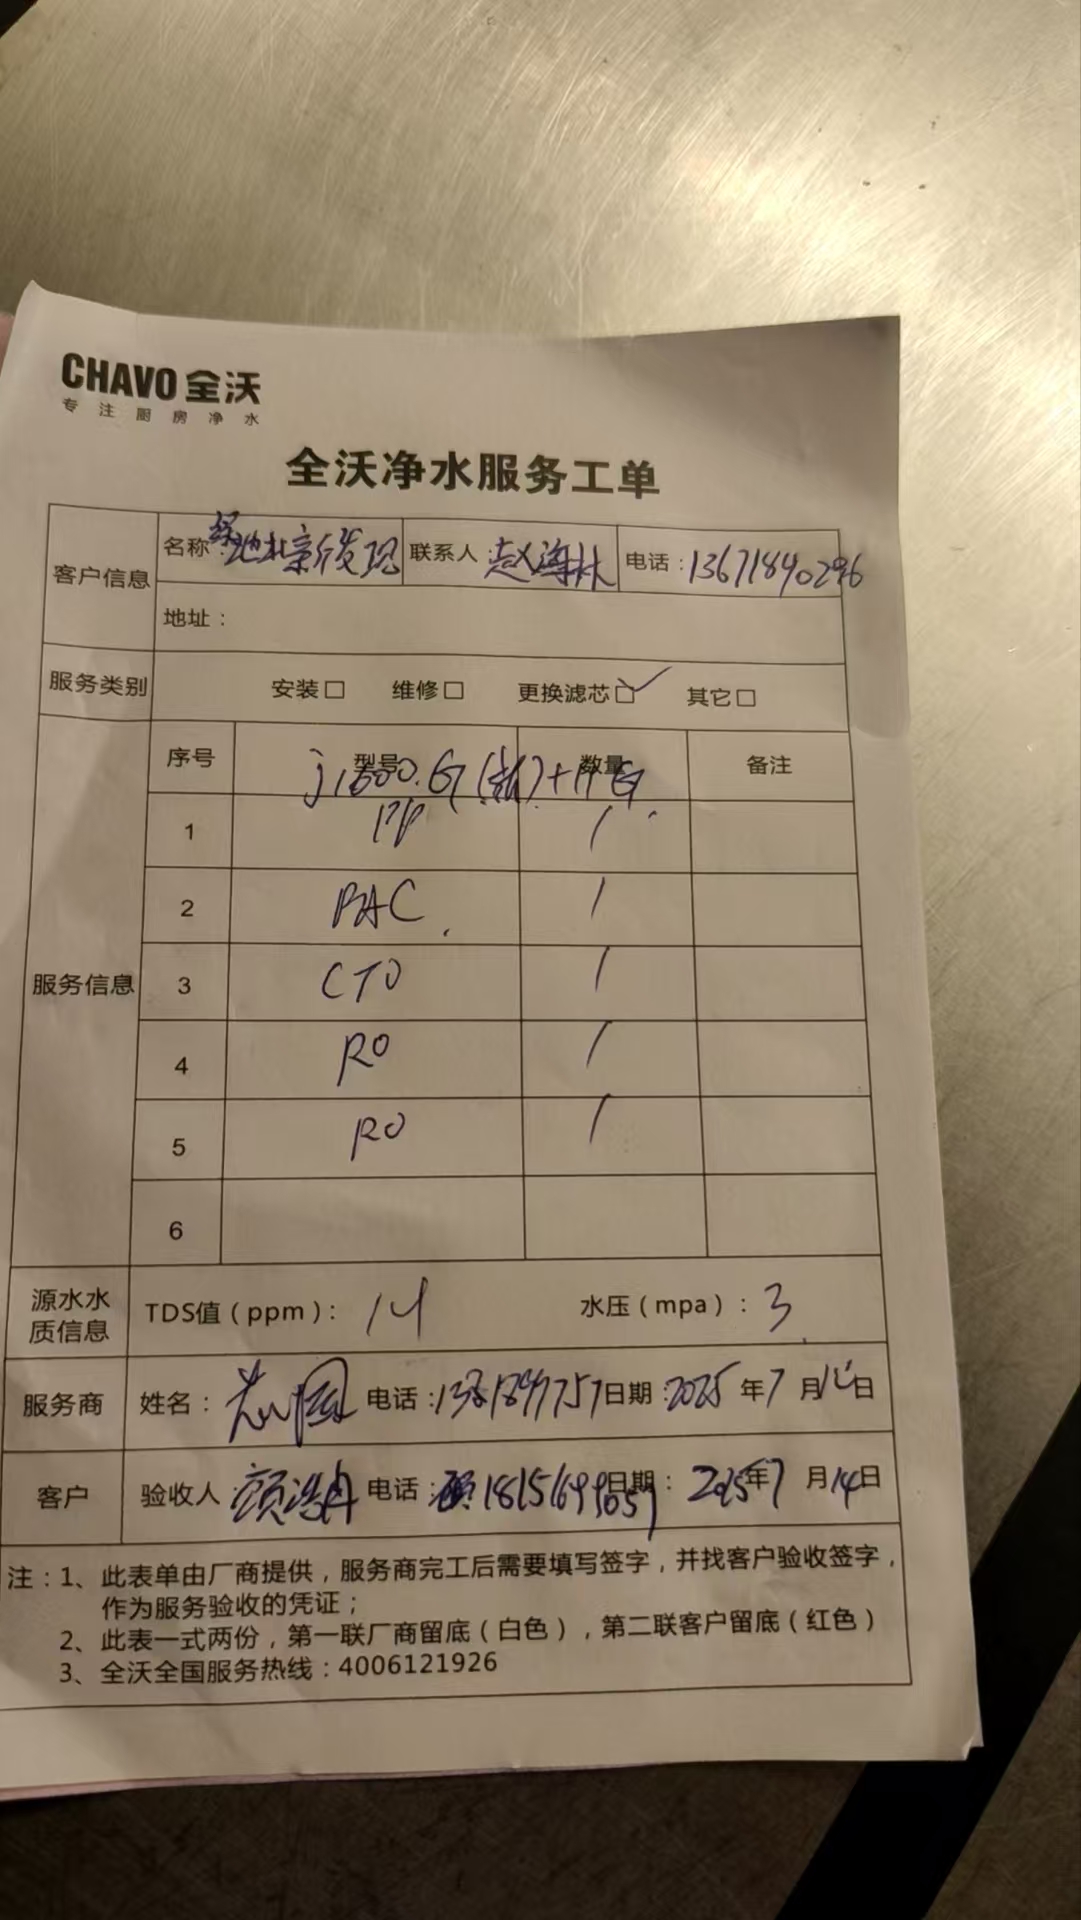 CHAVO 全沃
专注厨房净水
全沃净水服务工单
客户信息 名称：绿地北京行发现 联系人：赵海林 电话：13671840296
地址：
服务类别 安装□ 维修□ 更换滤芯□✓ 其它□
序号 型号 数量 备注
服务信息
1 PP 1
2 PAC 1
3 CTO 1
4 RO 1
5 RO 1
6
源水水质信息 TDS值（ppm）：14 水压（mpa）：3
服务商 姓名： 电话： 日期：2025年7月14日
客户 验收人： 电话： 日期：2025年7月14日
注：1、此表单由厂商提供，服务商完工后需要填写签字，并找客户验收签字，
作为服务验收的凭证；
2、此表一式两份，第一联厂商留底（白色），第二联客户留底（红色）
3、全沃全国服务热线：4006121926